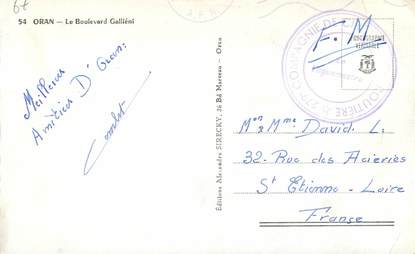 67
54 ORAN — Le Boulevard Galliéni
F. M
Meilleures
Amitiés D'Oran.
Éditions Alexandre SIRECKY, 36 Bd Marceau - Oran
COMPAGNIE DE
ROUTIERE
Mon & Mme David L.
32. Rue des Acieries
St Etienne - Loire
France